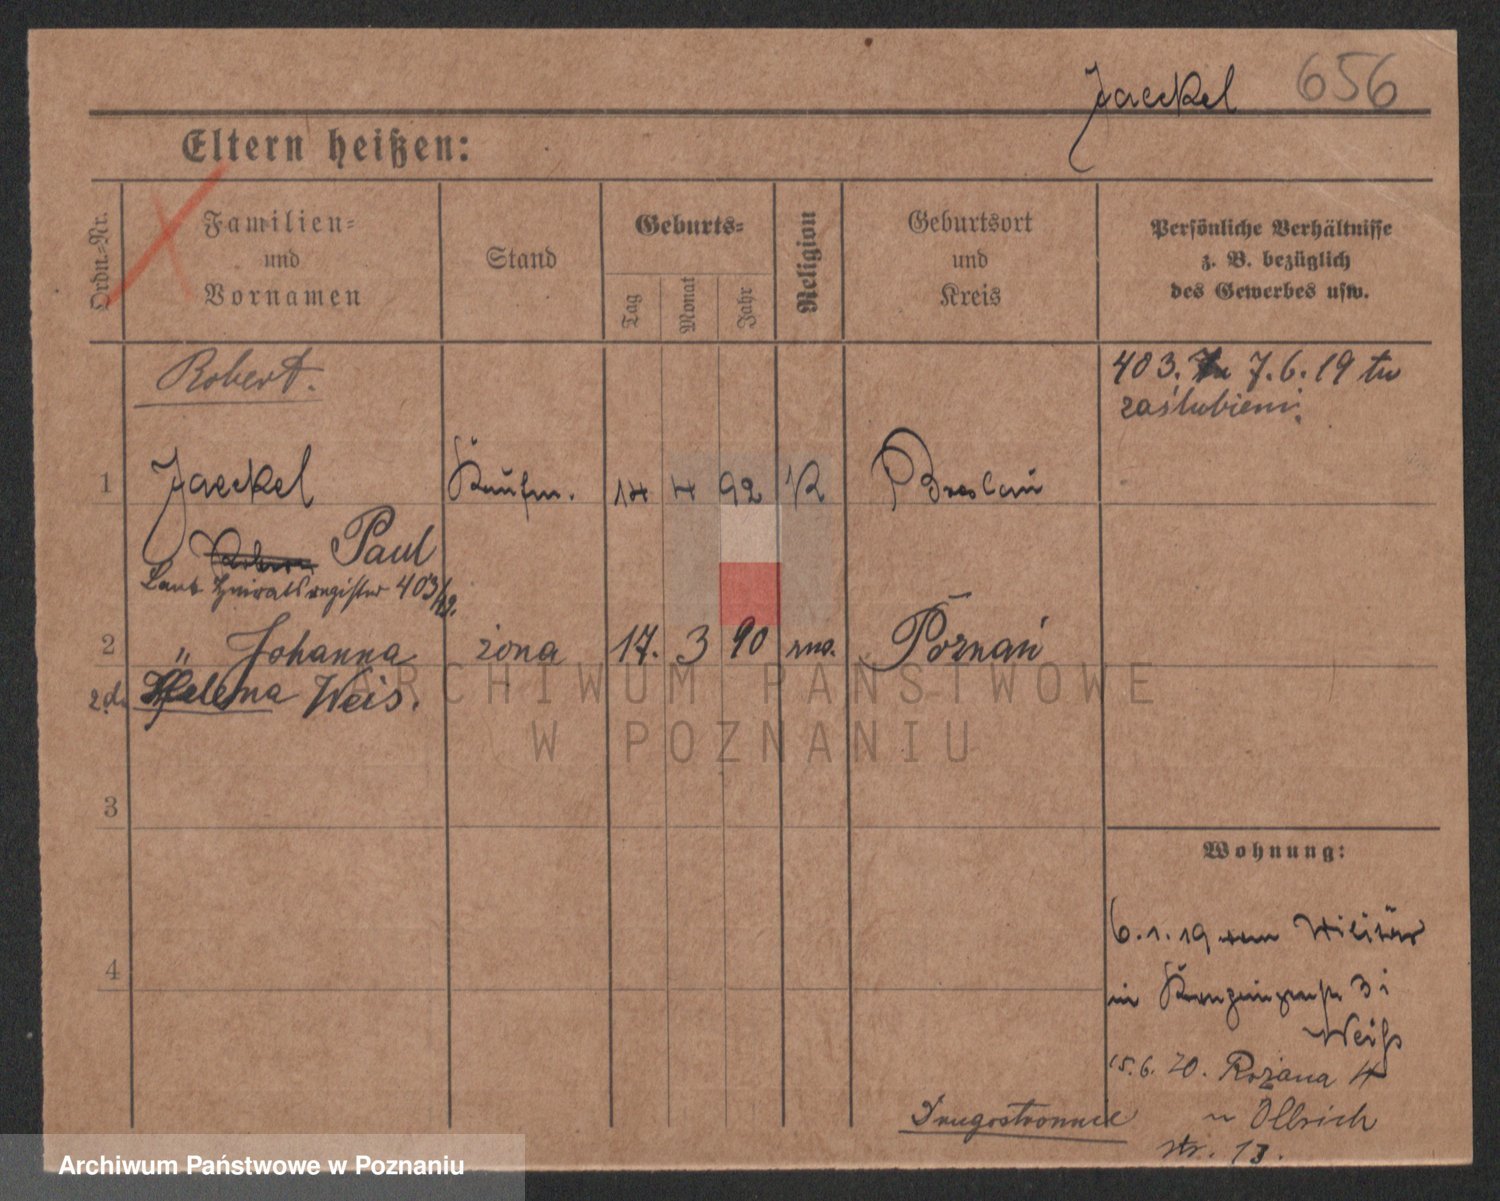 Jaeckel 656
Eltern heißen:
Ordn.-Nr.
Familien=
und
Vornamen
Stand
Geburts=
Tag
Monat
Jahr
Religion
Geburtsort
und
Kreis
Persönliche Verhältnisse
z. B. bezüglich
des Gewerbes usw.
Robert.
403. 7.6.19 tu
zaślubieni.
1 Jaeckel Kaufm. 14 4 92 K Breslau
Paul
Laut Heiratsregister 403/19.
2 " Johanna żona 17. 3 90 Poznań
Helena Weis.
3
4
Wohnung:
6.1.19 vom Militär
in 3 i
Weiß
15.6.20. Różana 4
u Ollrich
str. 13.
Drugostronnie
ARCHIWUM PAŃSTWOWE
W POZNANIU
Archiwum Państwowe w Poznaniu